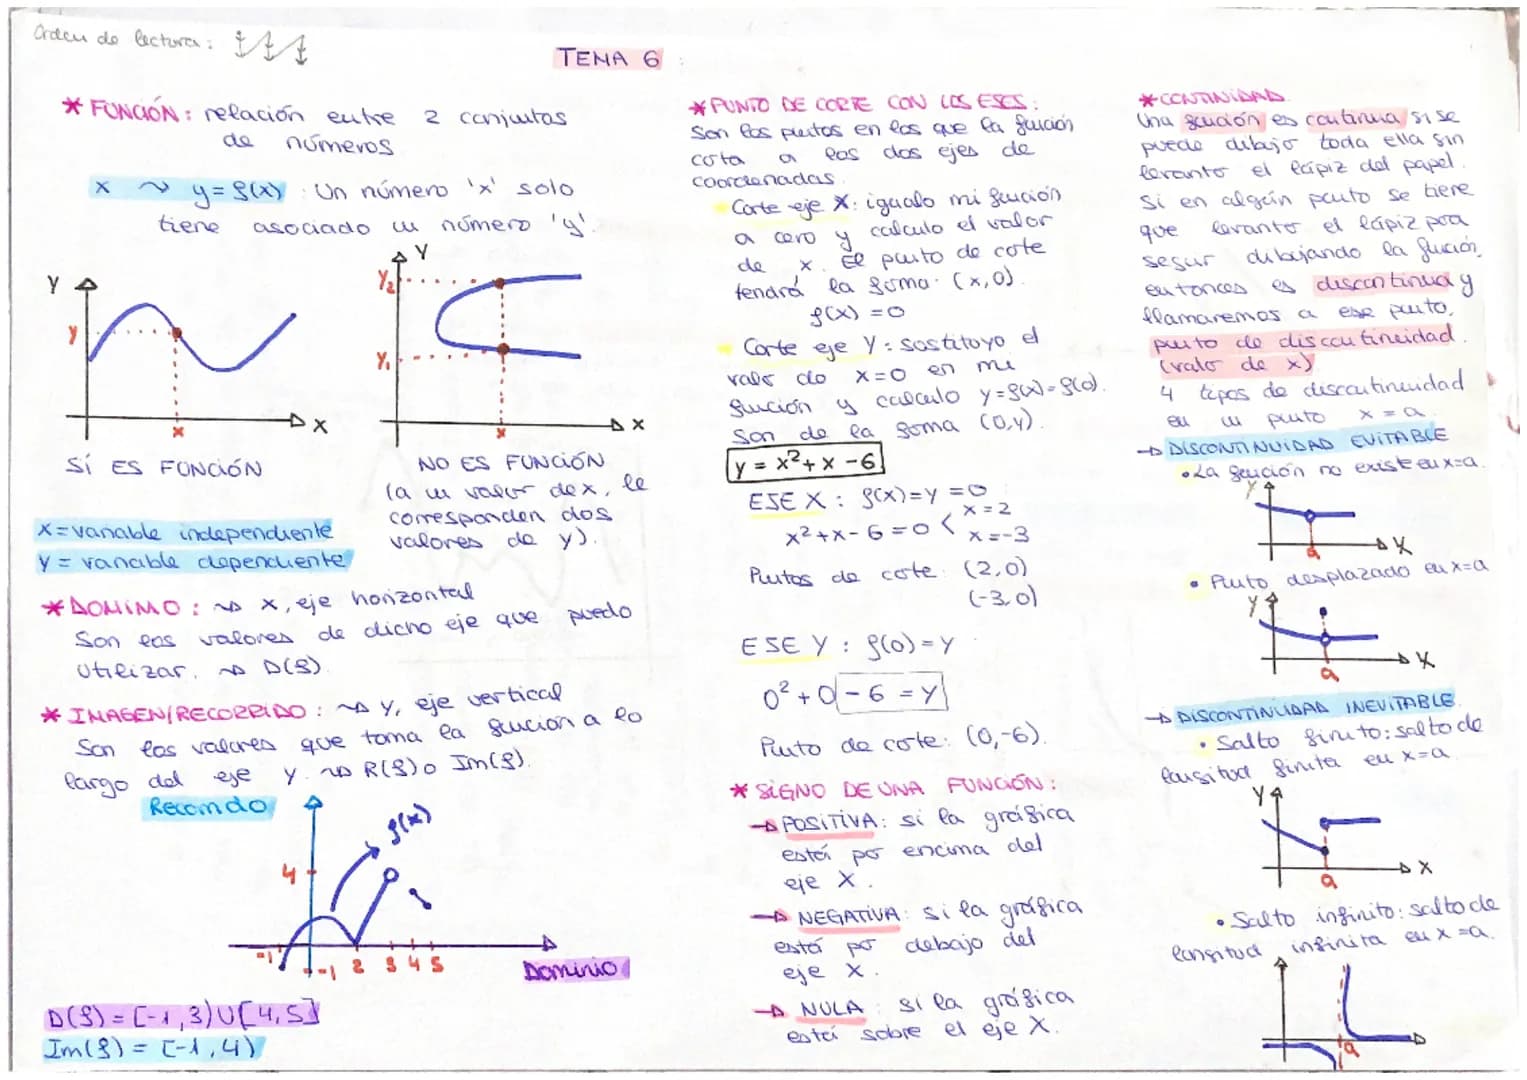 Orden de lectura:
TEMA 6
* FUNCIÓN: relación entre 2 conjuntos
de números
x ~ y = f(x) Un número 'x' solo
tiene asociado un número 'y'.
Y
y
x
X
SÍ ES FUNCIÓN
Y
Y₂
Y₁
x
X
NO ES FUNCIÓN
(a un valor de x, le
corresponden dos
valores de y).
X = variable independiente
Y = variable dependiente
* DOMINIO: ⇝ x, eje horizontal
Son los valores de dicho eje que puedo
utilizar. ⇝ D(f)
* IMAGEN/RECORRIDO: ⇝ y, eje vertical
Son los valores que toma la función a lo
largo del eje y. ⇝ R(f) o Im(f).
Recorrido
f(x)
4
-1 -1 2 3 4 5
Dominio
D(f) = [-1, 3) U [4, 5]
Im(f) = [-1, 4)
* PUNTO DE CORTE CON LOS EJES:
Son los puntos en los que la función
corta a los dos ejes de
coordenadas.
Corte eje X: igualo mi función
a cero y calculo el valor
de x. El punto de corte
tendrá la forma: (x,0).
f(x) = 0
Corte eje Y: sustituyo el
valor de x=0 en mi
función y calculo y=f(x)=f(0).
Son de la forma (0,y).
y = x² + x - 6
EJE X: f(x) = y = 0
x² + x - 6 = 0 < x = 2
x = -3
Puntos de corte: (2,0)
(-3,0)
EJE Y: f(0) = y
0² + 0 - 6 = y
Punto de corte: (0,-6).
* SIGNO DE UNA FUNCIÓN:
→ POSITIVA: si la gráfica
está por encima del
eje X.
→ NEGATIVA: si la gráfica
está por debajo del
eje X.
→ NULA: si la gráfica
está sobre el eje X.
* CONTINIDAD
Una función es continua si se
puede dibujo toda ella sin
levantar el lápiz del papel.
Si en algún punto se tiene
que levantar el lápiz para
seguir dibujando la función,
entonces es discontinua y
llamaremos a ese punto,
punto de discontinuidad.
(valor de x)
4 tipos de discontinuidad
en un punto x = a.
→ DISCONTINUIDAD EVITABLE
• La función no existe en x=a.
Y
a
X
• Punto desplazado en x=a
Y
a
X
→ DISCONTINUIDAD INEVITABLE.
• Salto finito: salto de
longitud finita en x=a.
Y
a
X
• Salto infinito: salto de
longitud infinita en x=a.
a